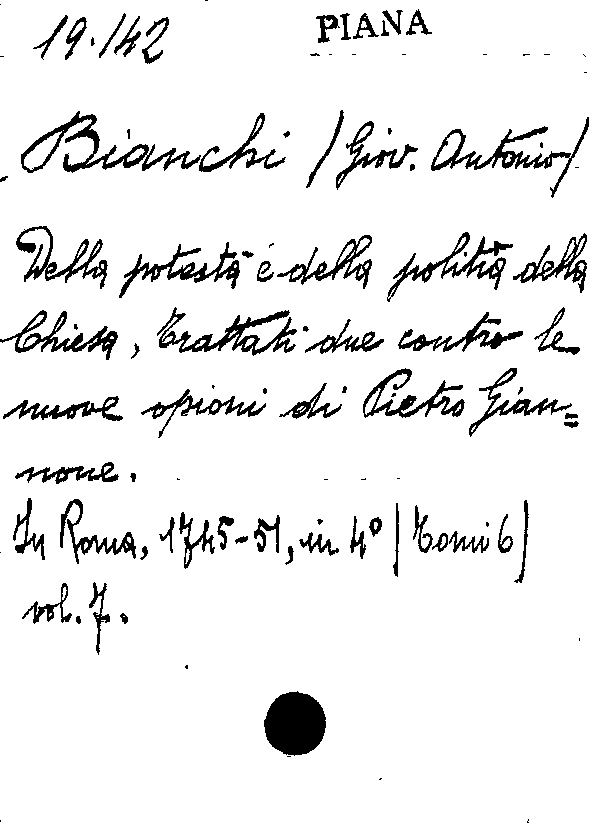 19./42 PIANA
Bianchi /Giov. Antonio/
Della potestà e della politia della
Chiesa, Trattati due contro le
nuove opioni di Pietro Gian=
none.
In Roma, 1745-51, in 4° | Tomi 6 |
vol. 7.